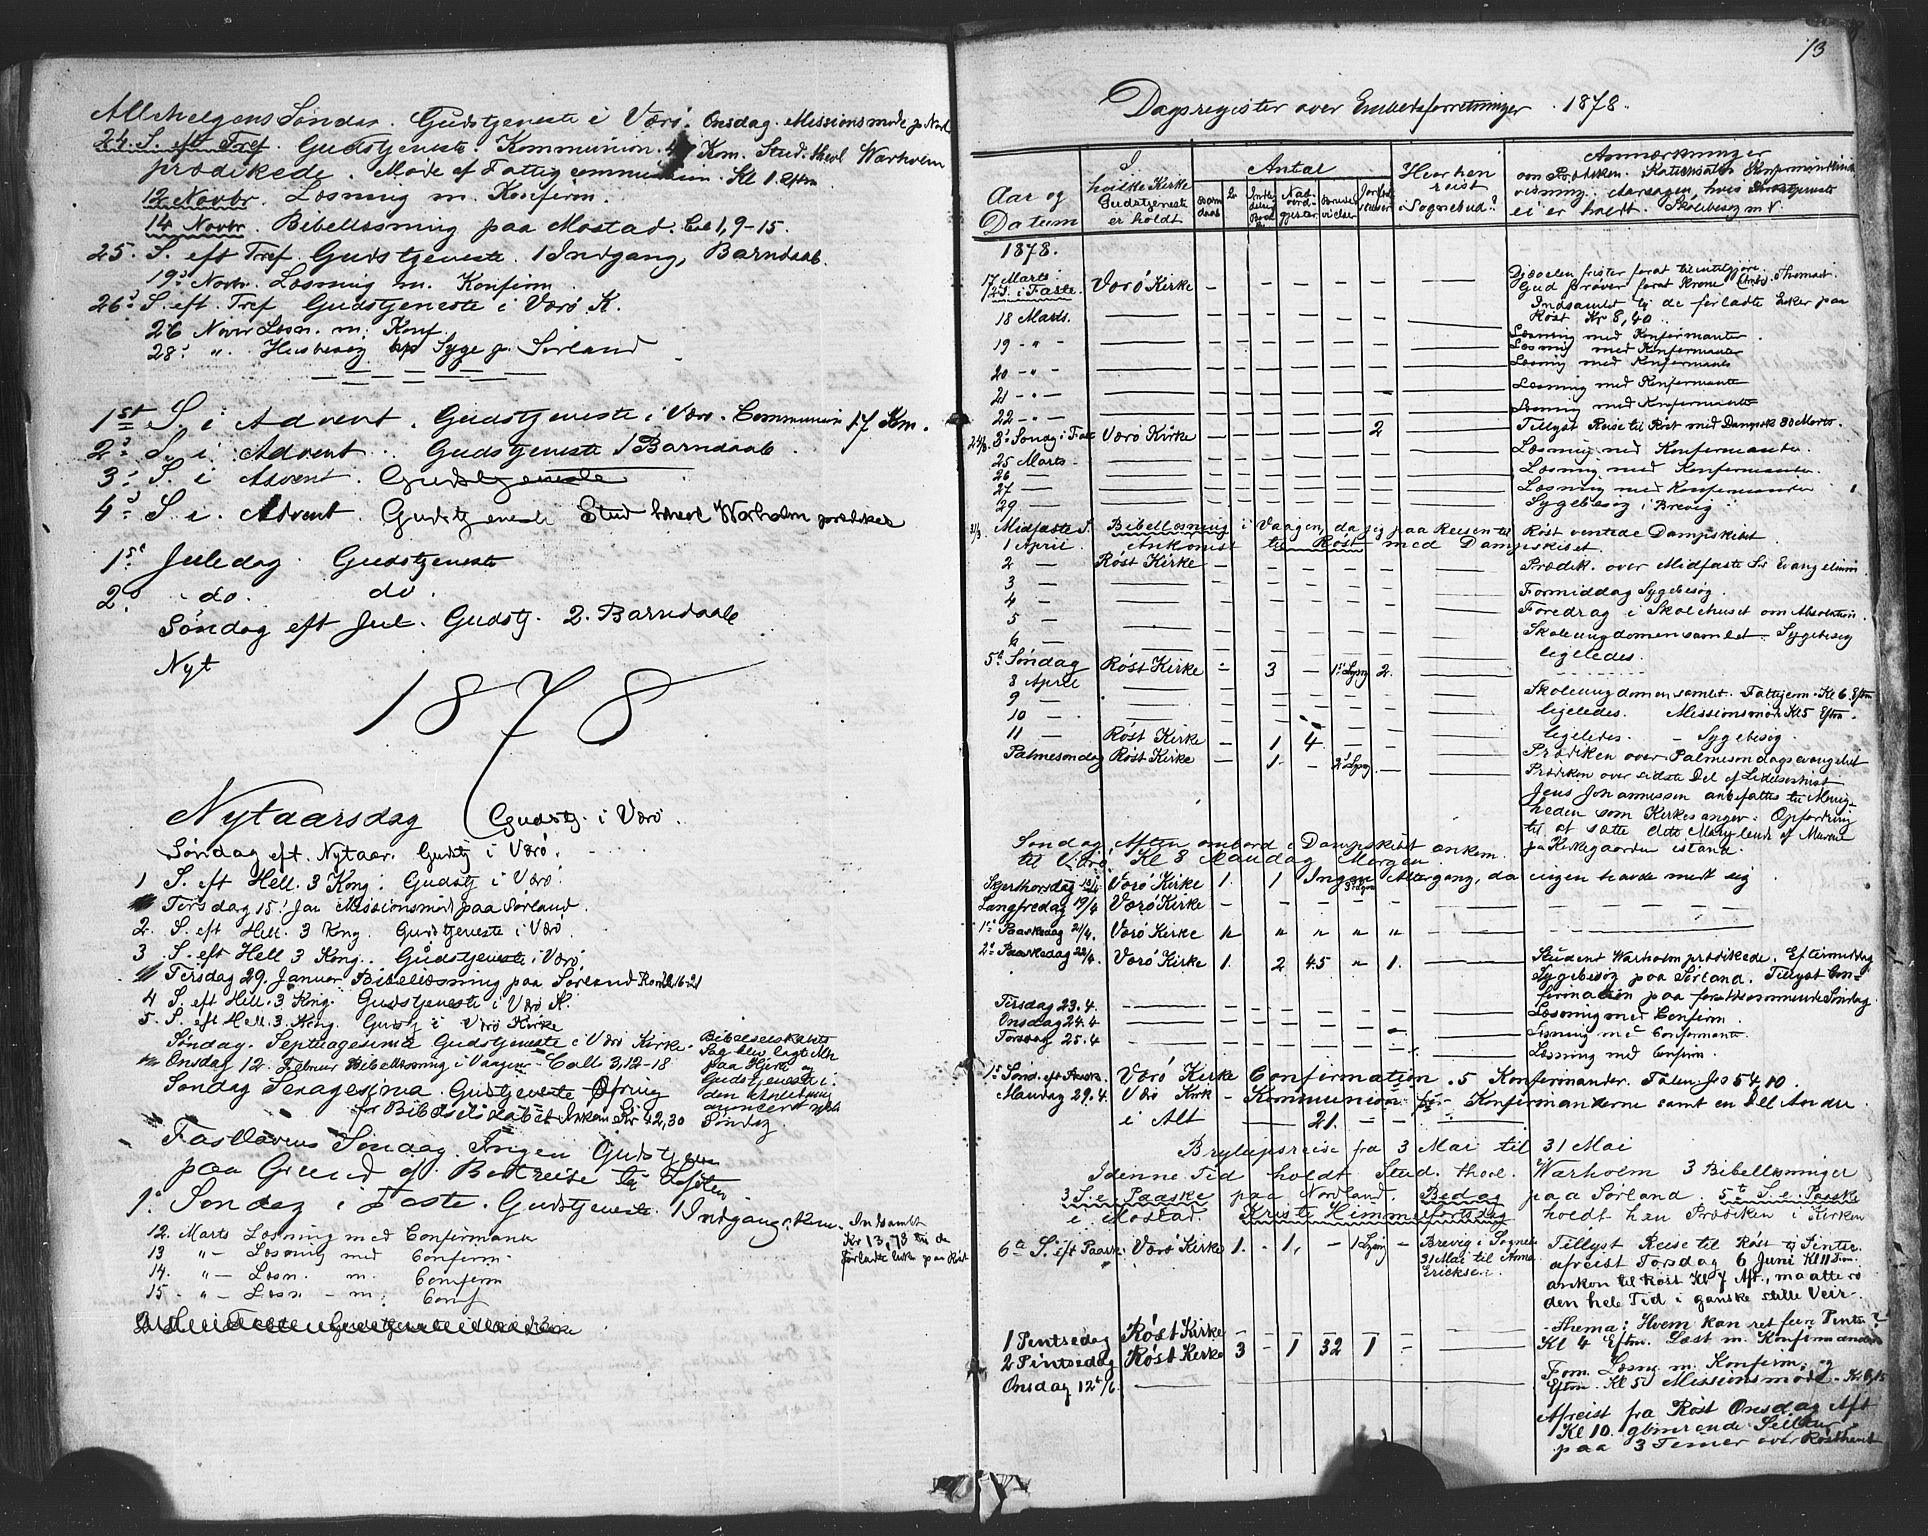 Allehelgens Søndag. Gudstjeneste i Værø. Onsdag. Missionsmøde p. Nord
24. S. eft Tref. Gudstjeneste. Kommunion. Kom. Stud. theol Warholm
prædikede. Møde af Fattigcommissionen. Kl 1 Eftm
12 Novbr. Læsning m. Konfirm.
14 Novbr. Bibellæsning paa Mostad. 1, 9-15.
25. S. eft Tref. Gudstjeneste. 1 Indgang, Barndaab.
19 Novbr. Læsning m. Konfirm.
26 S. eft. Tref Gudstjeneste i Værø K.
26 Novbr Læsn. m. Konf.
28 " Husbesøg Syge p. Sørland
1ste S. i Advent. Gudstjeneste i Værø. Communion 17 Kom.
2 S. i Advent. Gudstjeneste 1 Barndaab
3 S. i Advent. Gudstjeneste
4 S. i. Advent. Gudstjeneste Stud theol Warholm prædiket
1st Juledag Gudstjeneste
2. do. do.
Søndag eft Jul. Gudstj. 2. Barndaab
Nyt
1878
Nytaarsdag Gudstj. i Værø.
Søndag eft. Nytaar. Gudstj i Værø.
1 S. eft Hell. 3 Kong. Gudstj i Værø.
Tirsdag 15 Jan Missionsmøde paa Sørland.
2. S. eft Hell. 3 Kong. Gudstjeneste i Værø.
3 S. eft Hell 3 Kong. Gudstjeneste i Værø.
Tirsdag 29. Januar Bibellæsning paa Sørland Rom 16-21
4 S. eft Hell. 3 Kong. Gudstjeneste i Værø K.
5. S. eft Hell. 3. Kong. Gudstj i Værø Kirke
Søndag. Septuagesima Gudstjeneste i Værø Kirke. Bibelselskabets
Sag blev lagt Mn
Onsdag 12. Februar Bibellæsning i Vaagen - Coll 3, 12-18 paa Hjerte og
Søndag Sexagesima. Gudstjeneste Ofring Gudstjeneste i
for Bibelselskabet indkom Kr 42,30 Søndag
Fastelavens Søndag. Ingen Gudstjen
paa Grund af Baatreise til Lofoten
1. Søndag i Faste. Gudstjeneste. 1 Indgangskone. Indsamlet
Kr 13,73 til de
forladte paa Røst
12. Marts Læsning med Confirmant
13 " - Læsning med Confirm.
14. " - Læsn. m. Confirm
15. " - Læsn - m. Conf
13
Dagsregister over Embedsforretninger 1878.
Aar og Datum
I hvilke Kirke Gudstjeneste er holdt
Antal
Barndaab
Nadv. gjester
Hvorhen reist i Sognebud?
Anmærkninger
om Prædiken. Katechisation Konfirmantund
visning. Aarsagen, hvis Gudstjeneste
ei er holdt. Skolebesøg m.v.
1878.
17 Marts. 2 S. i Faste. Værø Kirke — Djævelen frister forat tilintetgjøre. Gud prøver forat krone
Indsamlet til de forladte Enker paa
Røst Kr 8,40
18 Marts. — Læsning med Konfirmanter
19 - " - — Læsning med Konfirmanter
20 - " - — Læsning med Konfirmants
21 - " - — Læsning med Konfirmante
22 - " - — Læsning med Konfirmante
24/3. 3 Søndag i Faste Værø Kirke 2 Tillyst Reise til Røst med Dampsk 30 Marts.
25 Marts — Læsning med Konfermanter.
26 — Læsning med Konfermanter
27 — Læsning med Konfermander
29 — Sygebesøg i Brevig
31/3 Midfaste S. Bibellæsning i Vaagen, da jeg paa Reisen til Røst ventede Dampskibet
1 April Ankomst til Røst med Dampskibet.
2 — Røst Kirke Prædik. over Midfaste S. Evangelium
3 — Formiddag Sygebesøg.
4 — Foredrag i Skolehuset om Absolution
5 — Skoleungdomen samlet - Sygebesøg
6 — ligeledes.
5 Søndag Røst Kirke 3 1 Lysn 2.
8 April Skoleungdomen samlet. Fattigkom. Kl 6. Eftm
9 — ligeledes. Missionsmøde Kl 5 Eftm.
10 — ligeledes. - Sygebesøg.
11 — Røst Kirke 1 4 Prædiken over Palmesøndagsevangeliet
Palmesøndag Røst Kirke 1 2 Lysn Prædiken over sidste Del af Lidelseshist
Jens Johannessen anbefaltes til Menig-
heden som Kirkesanger. Opfordring
til at sætte dette
paa Kirkegaarden istand.
Søndag Aften ombord i Dampskibet ankom.
til Værø Kl 8 Mandag Morgen
Skjærthorsdag 18/4 Værø Kirke 1. 1 Ingen Altergang, da ingen havde meldt sig
Langfredag 19/4 Værø Kirke
1 Paaskedag 21/4. Værø Kirke " " " " "
2 Paaskedag 22/4. Værø Kirke 1. 2 45 " 1. Student Warholm prædikede. Eftermiddag
Sygebesøg paa Sørland. Tillyst Con-
firmation paa førstkommende Søndag.
Tirsdag 23. 4. — Læsning med Confirm.
Onsdag 24. 4 — Læsning med Confirmante
Torsdag 25. 4 — Læsning med Confirm.
1 Sønd. eft Paask. Værø Kirke Confirmation. 5 Konfirmander. Talen Jes 54, 10.
Mandag 29. 4. Værø Kirk - Kommunion - Konfirmanderne samt en Del Andre
i Alt 21.
Bryllupsreise fra 3 Mai til 31 Mai
I denne Tid holdt Stud. theol. Warholm 3 Bibellæsninger
3 S. e. Paaske paa Nordland. Bededag paa Sørland. 5te S. e. Paaske
i Mostad. Kristi Himmelfartsdag holdt han Prædiken i Kirken
6te S. eft Paask. Værø Kirke 1. - 1. - 1 Lysn - Brevig i Sogneb
31 Mai til Anna
Ericksen.
Tillyst Reise til Røst til Pinter.
afreist Torsdag 6 Juni Kl 11 Fm.
ankom til Røst Kl 7 Aft., maatte ro
den hele Tid i ganske stille Veir.
- Thema: Hvem kan ret feire Pinse?
1 Pintsedag Røst Kirke - - 1 32 1 Kl 4 Eftm. Læst m. Konfirmander
2 Pintsedag Røst Kirke 3
Onsdag 12/6. Fom. Læsn m. Konfirm. og
Eftm. Kl 5 Missionsmøde. Kr 6,15
Afreist fra Røst Onsdag Aft
Kl 10. glimrende Seiltur
paa 3 Timer over Rösthavet